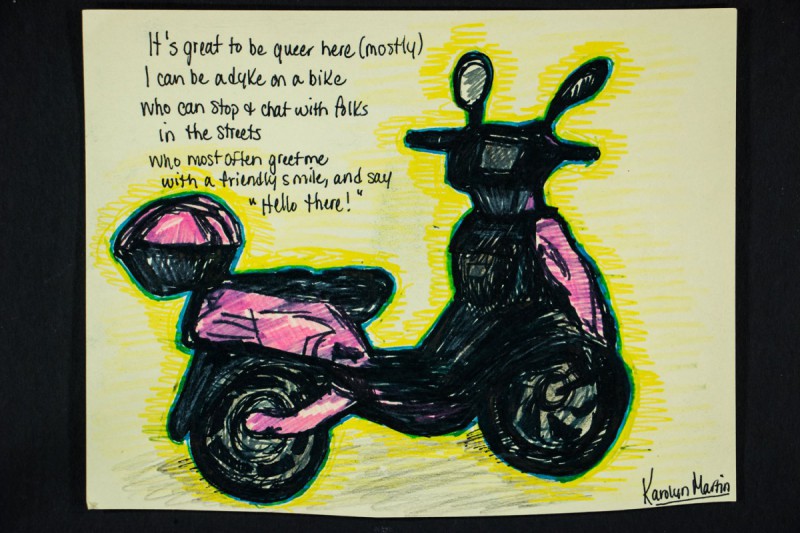 It's great to be queer here (mostly)
I can be a dyke on a bike
who can stop & chat with folks
in the streets
who most often greet me
with a friendly smile, and say
"Hello there!"
Karolyn Martin